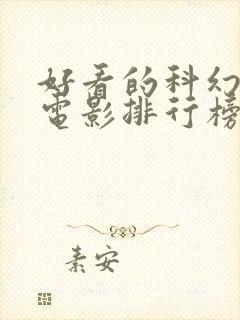 好看的科幻
电影排行榜
素安